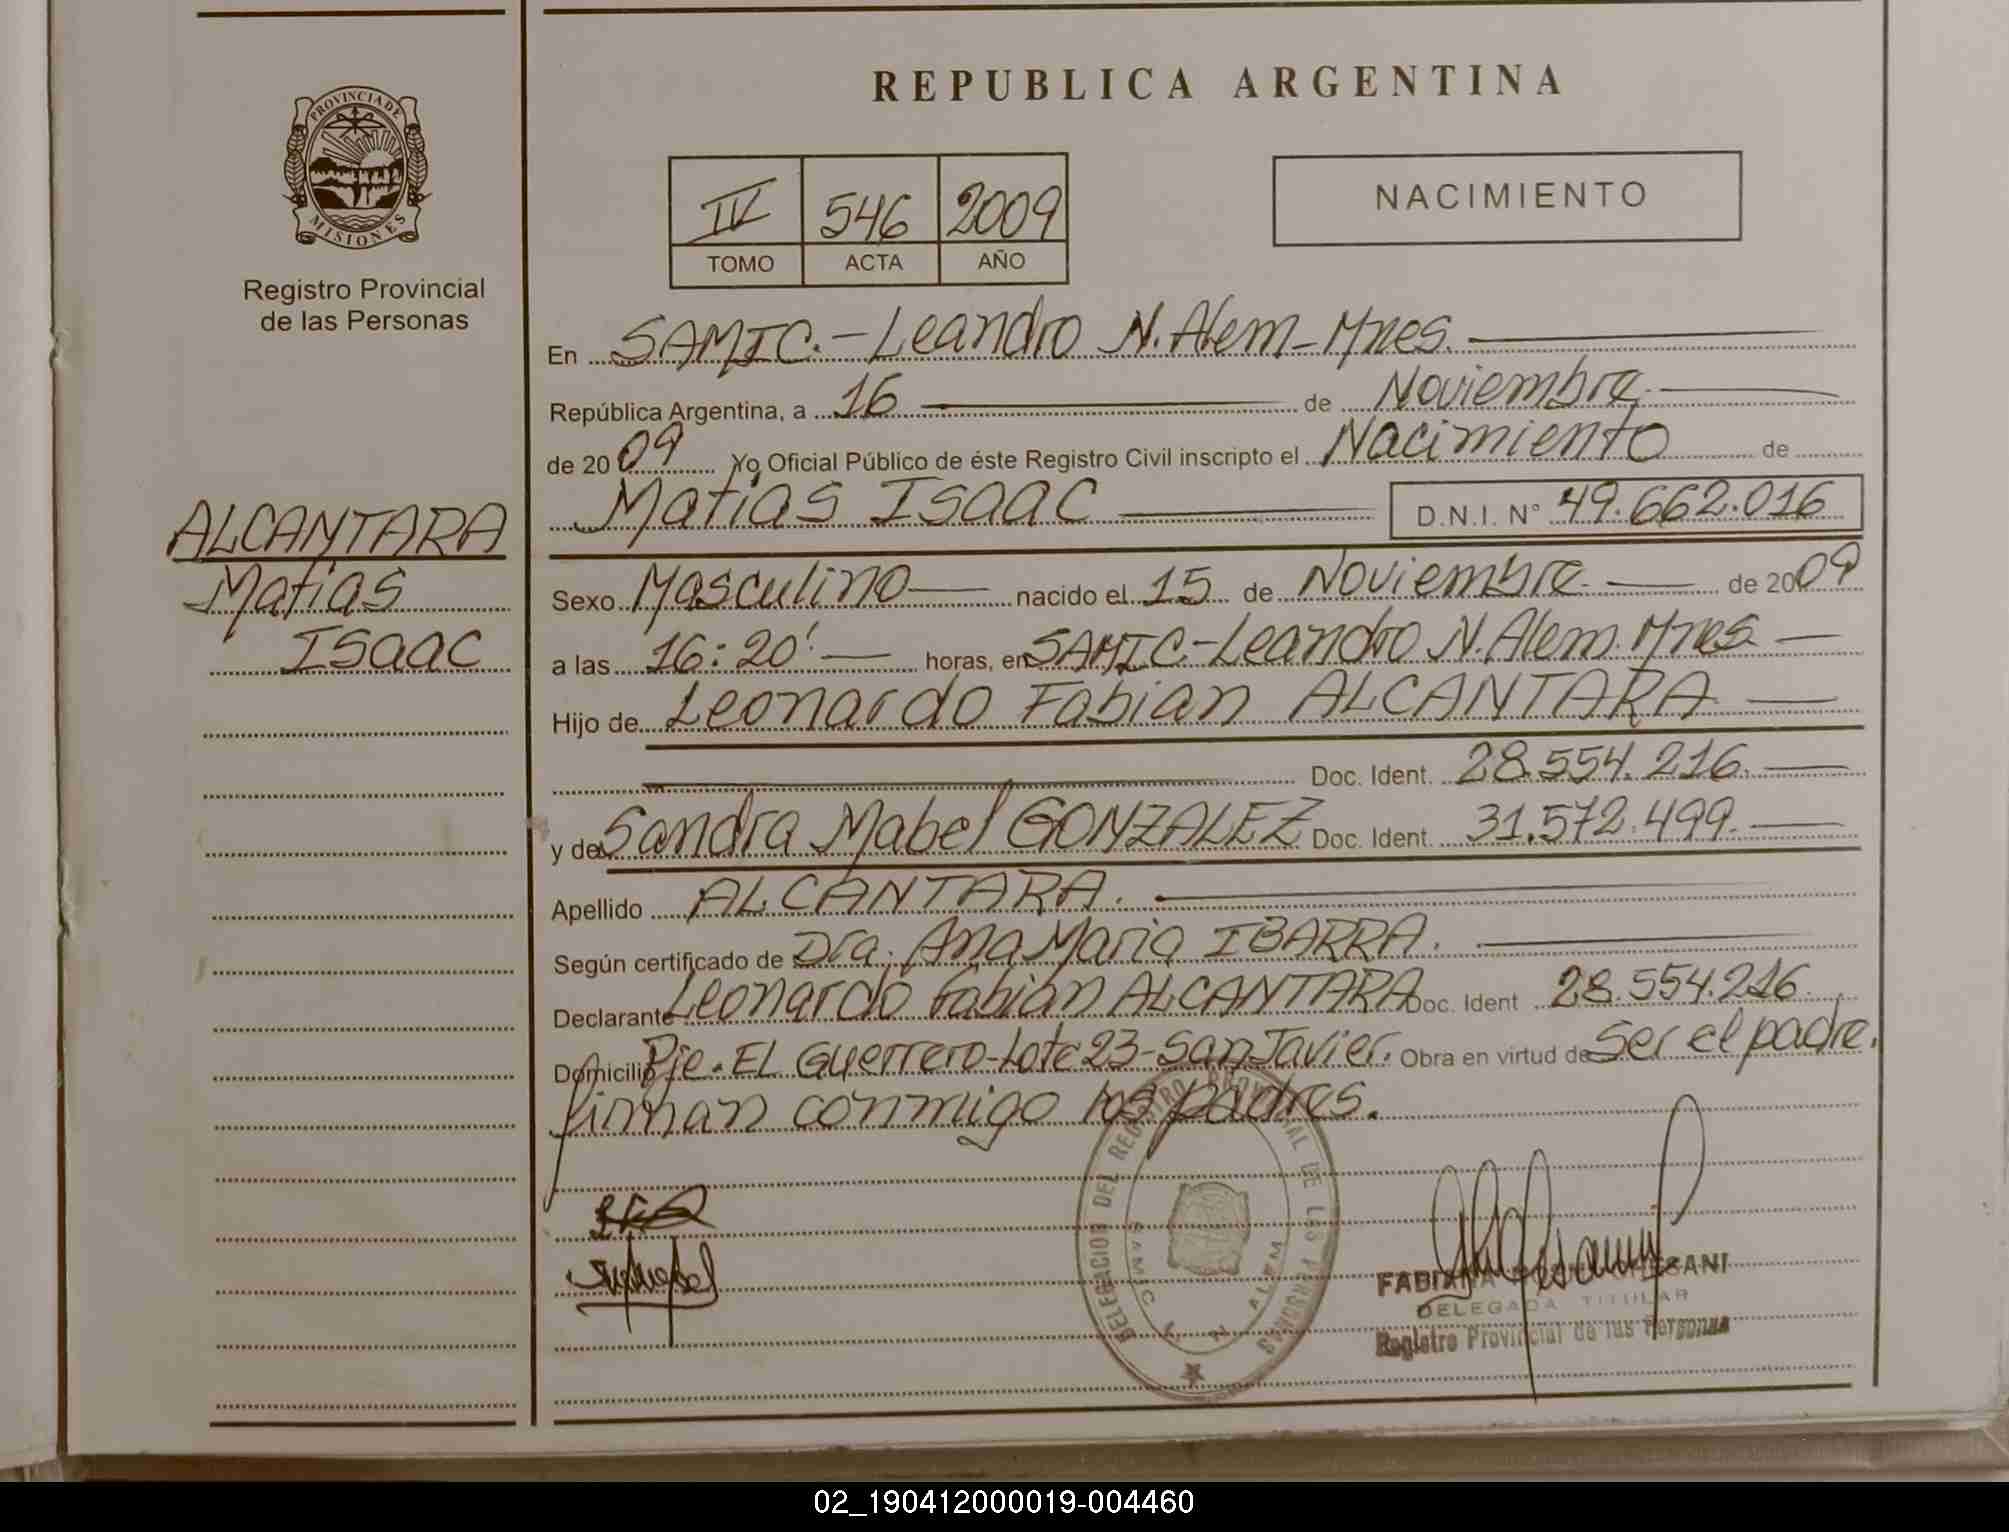 REPUBLICA ARGENTINA
PROVINCIA DE
MISIONES
Registro Provincial
de las Personas
IV 546 2009
TOMO ACTA AÑO
NACIMIENTO
En SAMIC.-Leandro N. Alem-Mnes.
República Argentina, a 16 de Noviembre
de 2009 Yo Oficial Público de éste Registro Civil inscripto el Nacimiento de
Matias Isaac D.N.I. N° 49.662.016
ALCANTARA
Matias
Isaac
Sexo Masculino nacido el 15 de Noviembre de 2009
a las 16:20' horas, en SAMIC-Leandro N. Alem. Mnes
Hijo de Leonardo Fabian ALCANTARA
Doc. Ident. 28.554.216.
y de Sandra Mabel GONZALEZ Doc. Ident. 31.572.499.
Apellido ALCANTARA.
Según certificado de Dra. Ana Maria IBARRA.
Declarante Leonardo Fabian ALCANTARA Doc. Ident 28.554.216.
Domicilio Pje. El Guerrero-Lote 23-San Javier. Obra en virtud de Ser el padre.
firman conmigo los padres.
DELEGACION DEL REGISTRO PROVINCIAL DE LAS PERSONAS
SAMIC L. N. ALEM
FABIANA
DELEGADA TITULAR
Registro Provincial de las Personas
02_190412000019-004460